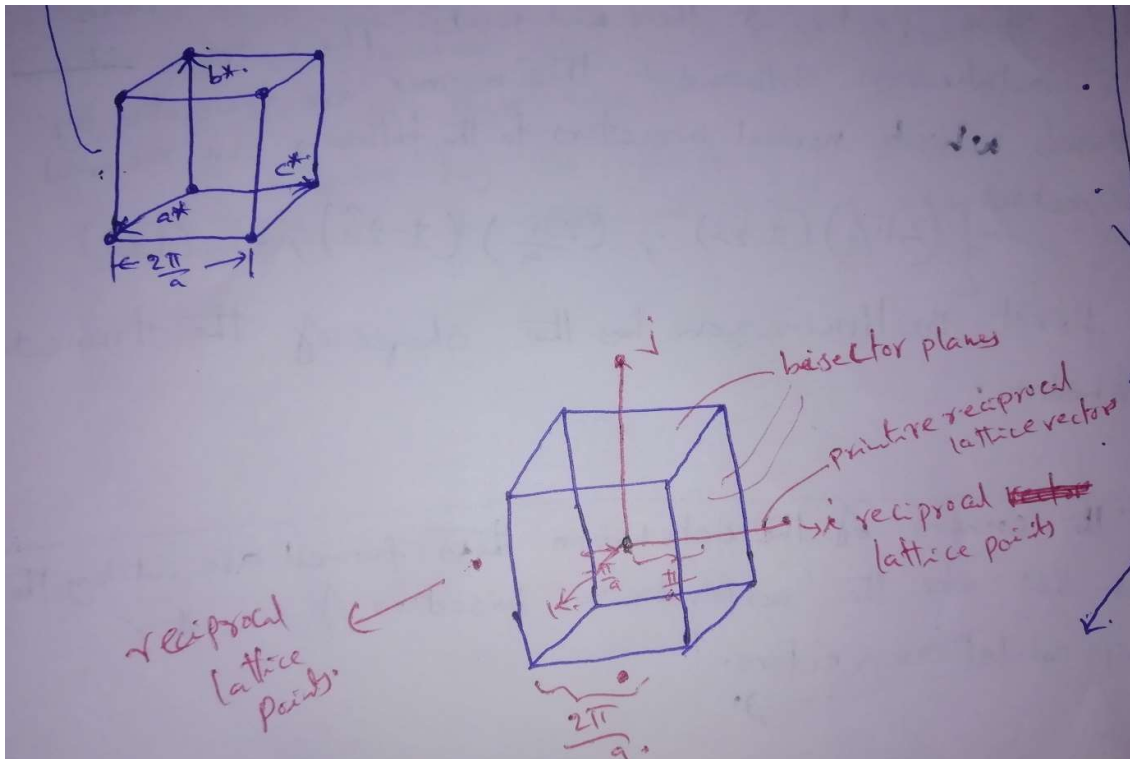 b*.
c*.
a*
2π
a
j
beisector planes
primitive reciprocal
lattice vectors
i reciprocal
lattice points
π
a
π
a
k
reciprocal
lattice
points.
2π
a.